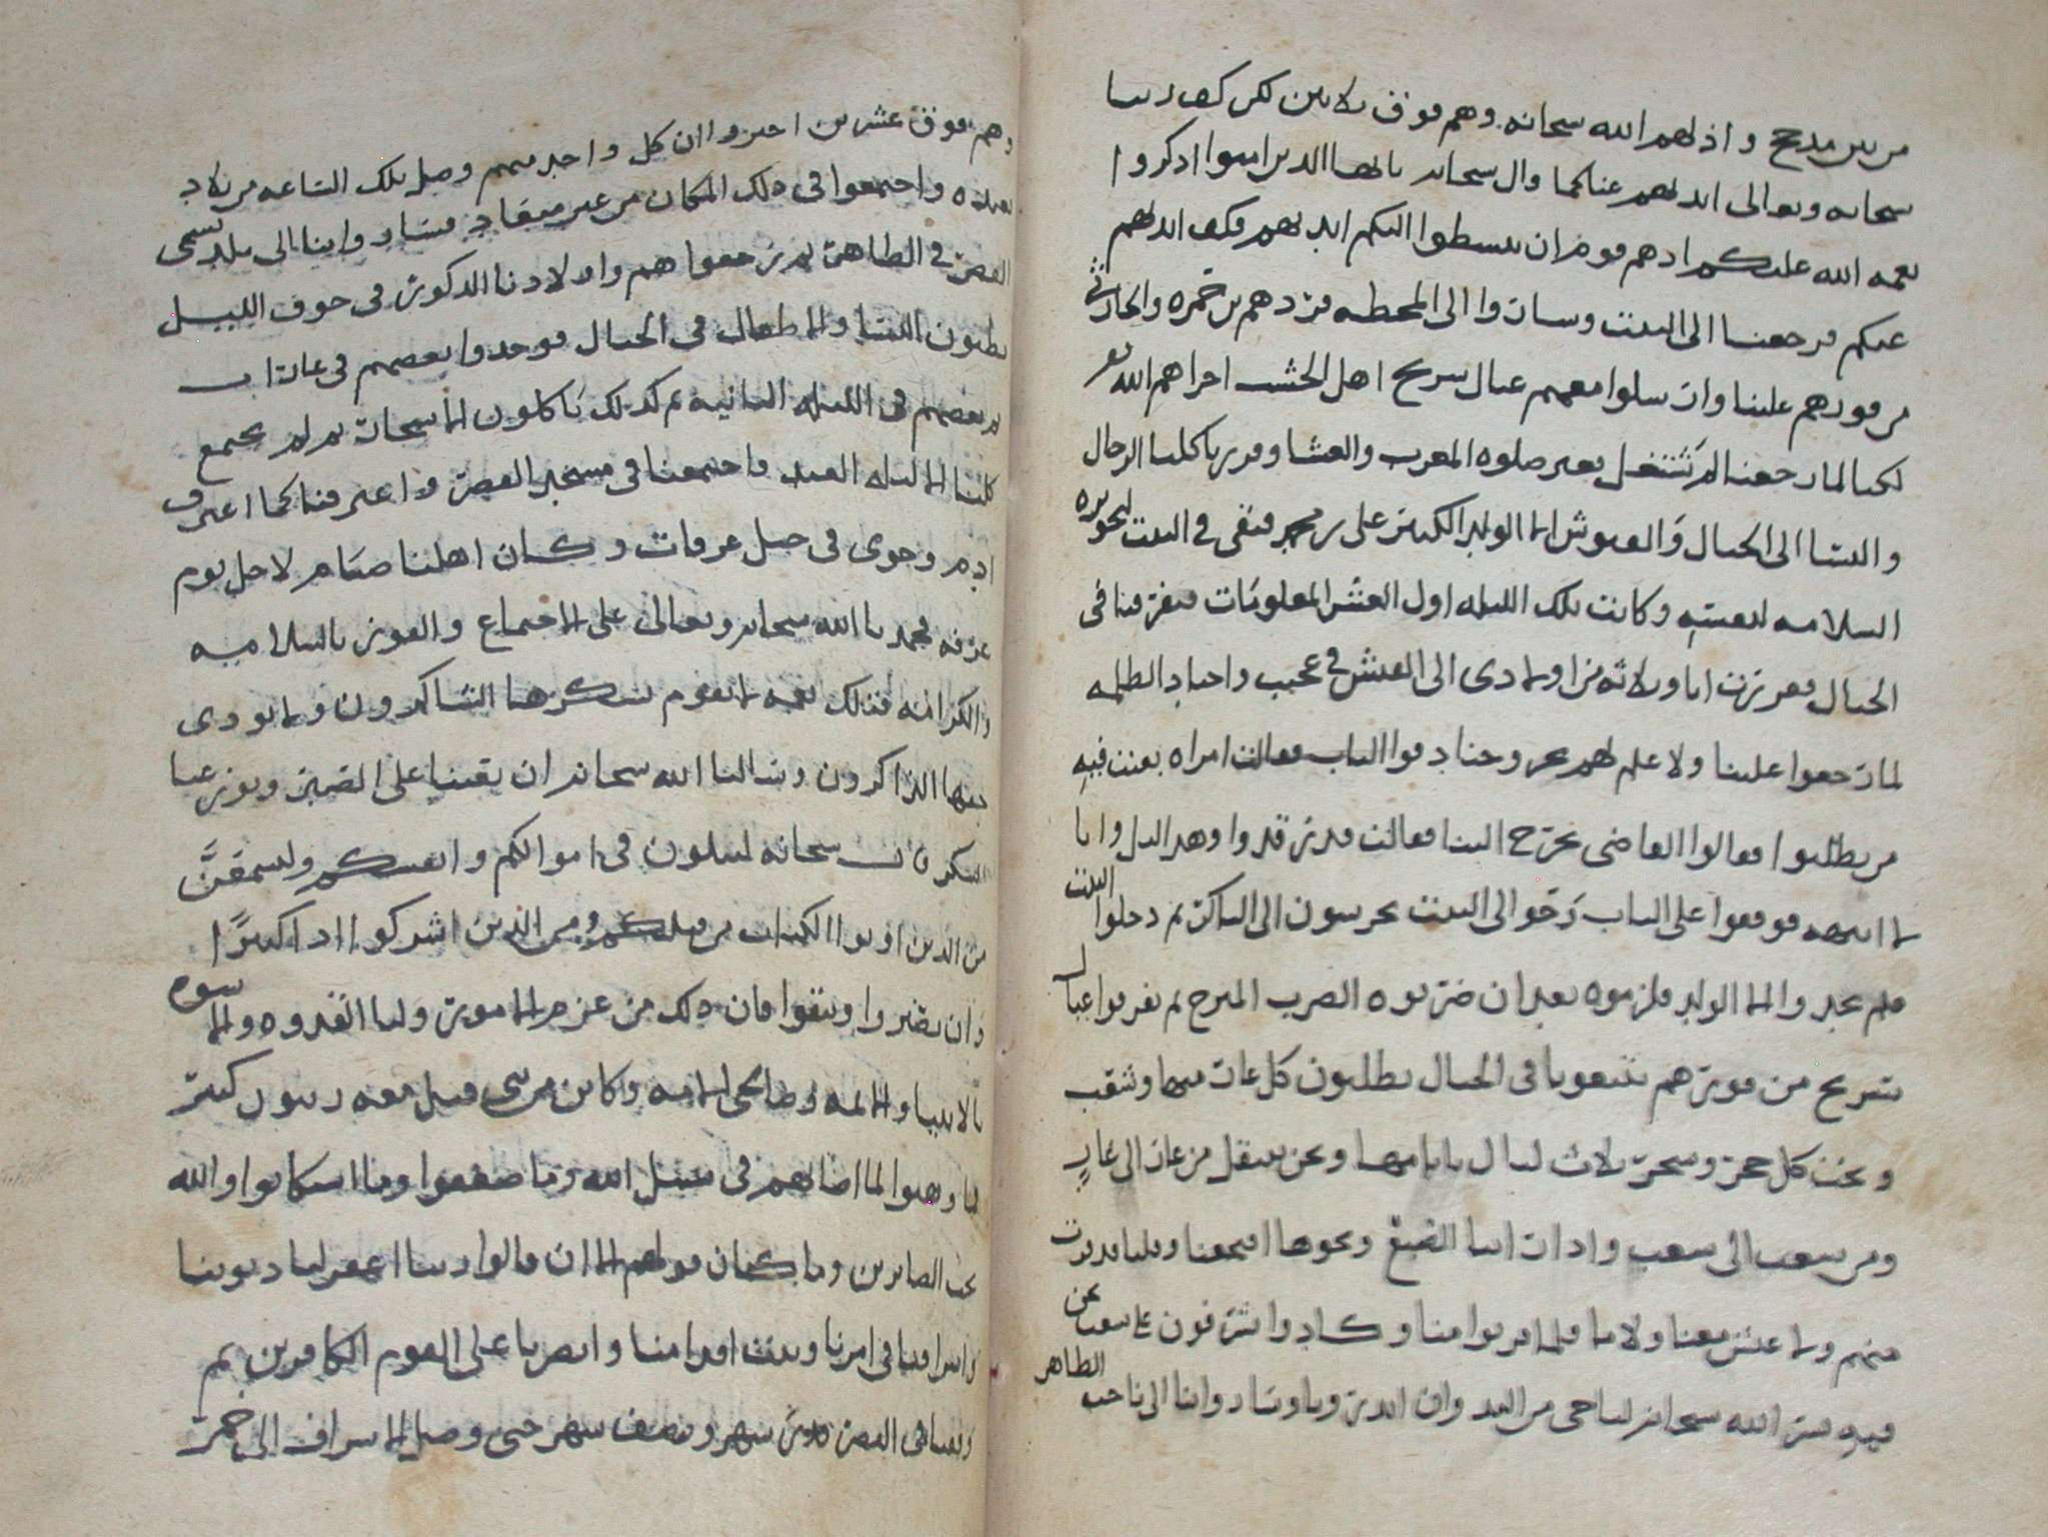 من بين مدحج واذلهم الله سبحانه وهم فوق ثلاثين لكن كف ربنا
سبحانه وتعالى ايديهم عنا كما قال سبحانه يا ايها الذين امنوا اذكروا
نعمة الله عليكم اذ هم قوم ان يبسطوا اليكم ايديهم فكف ايديهم
عنكم فرجعنا الى البيت وساروا الى المحطه فردهم بن حمزه والحارثي
من فورهم علينا وارسلوا معهم عيال سريح اهل الخشب اخزاهم الله تع
لكنا لما رجعنا لم نشتغل بغير صلوه المغرب والعشا وفررنا كلنا الرجال
والنسا الى الجبال والعشوش الا الولد الكبير علي بن محمد فبقى في البيت لتحويزه
السلامه لنفسه وكانت تلك الليله اول العشر المعلومات فتفرقنا في
الجبال فمررت انا وثلاثه من اولادي الى العشش في عجيب واحياد الظلمه
لما رجعوا علينا ولا علم لهم وحنا دقوا الباب فقالت امراه بقيت فيه
من تطلبوا فقالوا القاضي يخرج الينا فقالت قد رقدوا وهذا الليل وانا
لا انبهه فوقفوا على الباب رخوا الى البيت يحرسون الى الباكر ثم دخلوا البيت
فلم يجدوا الا الولد فلزموه بعد ان ضربوه الضرب المبرح ثم تفرقوا عيال
سريح من فورهم تتبعونا في الجبال يطلبون كل غار فيها وشعب
وتحت كل حجر وشجر ثلاث ليال بايامها ونحن ننتقل من غار الى غار
ومن شعب الى شعب واذا رات النسا الضبع ونحوها افجعنا وقلنا قد قربت
منهم ولا عيش معنا ولا ما فلما قربوا منا وكادوا يشرفون على شعب نحن
فيه يسر الله سبحانه لنا حي من اليد وان ابدر وما وسار وانا الى ناحيه الظاهر
وهم فوق عشرين اخبروا ان كل واحد منهم وصل تلك الساعه من بلاد
بعيده واجتمعوا في ذلك المكان من غير ميعاد فساروا بنا الى بلد تسمى
القصر في الظاهر ثم رجعوا هم واولادنا الذكور في جوف الليل
يطلبون النسا والاطفال في الجبال فوجدوا بعضهم في غار اب
ثم بعضهم في الليله الثانيه ثم كذلك ياكلون الاشجار ثم لم يجتمع
كلنا الا ليله العيد فاجتمعنا في مسجد القصر واعترفنا كما اعترف
ادم وحوى في جبل عرفات وكان اهلنا صيام لاجل يوم
عرفه فحمدنا الله سبحانه وتعالى على الاجتماع والفوز بالسلامه
والكرامه فتلك نعمه لا يقوم بشكرها الشاكرون ولا يودي
حقها الذاكرون وسالنا الله سبحانه ان يعيننا على الصبر ويوزعنا
الشكر قال سبحانه لتبلون في اموالكم وانفسكم ولتسمعن
من الذين اوتوا الكتاب من قبلكم ومن الذين اشركوا اذا كثيرا
وان تصبروا وتتقوا فان ذلك من عزم الامور ولنا القدوه والاسوه
بالانبيا والائمه وصالحي الامه وكاين من نبي قتل معه ربيون كثير
فما وهنوا لما اصابهم في سبيل الله وما ضعفوا وما استكانوا والله
يحب الصابرين وما كان قولهم الا ان قالوا ربنا اغفر لنا ذنوبنا
واسرافنا في امرنا وثبت اقدامنا وانصرنا على القوم الكافرين ثم
وقفنا في القصر قدر شهر ونصف شهر حتى وصل الاشراف الى حمر